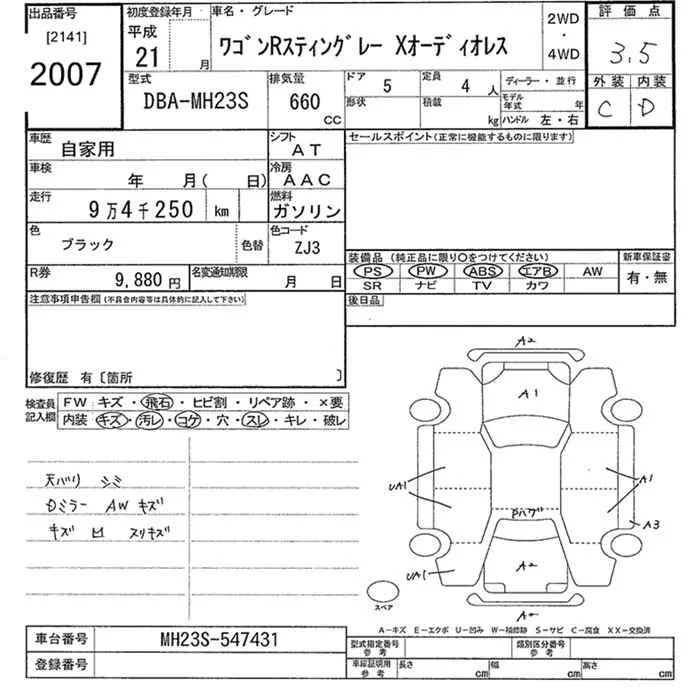 出品番号
[2141]
2007
初度登録年月
平成
21 月
車名・グレード
ワゴンRスティングレー Xオーディオレス
2WD
・
4WD
評価点
3.5
外装 内装
C D
型式
DBA-MH23S
排気量
660
CC
ドア 5
定員 4 人
形状
積載 kg
ディーラー・並行
モデル年式 年
ハンドル 左・右
車歴
自家用
シフト
AT
車検
年 月( 日)
冷房
AAC
走行
9万4千250 km
燃料
ガソリン
色
ブラック
色替
色コード
ZJ3
R券
9,880 円
名変通知期限
月 日
セールスポイント(正常に機能するものに限ります)
装備品 (純正品に限り〇をつけてください)
PS PW ABS エアB AW
SR ナビ TV カワ
新車保証書
有・無
後日品
注意事項申告欄(不具合内容等は具体的に記入して下さい)
修復歴 有〔箇所 〕
検査員記入欄
FW キズ・飛石・ヒビ割・リペア跡・×要
内装 キズ・汚レ・コゲ・穴・スレ・キレ・破レ
天バリ シミ
Dミラー AW キズ
キズ 凹 スリキズ
A2
A1
UA1
A1
A3
Pハゲ
UA1
A2
A2
スペア
A-キズ E-エクボ U-凹み W-補修跡 S-サビ C-腐食 XX-交換済
車台番号
MH23S-547431
登録番号
型式指定番号
参考
類別区分番号
参考
車庫証明用
参考
長さ cm
幅 cm
高さ cm